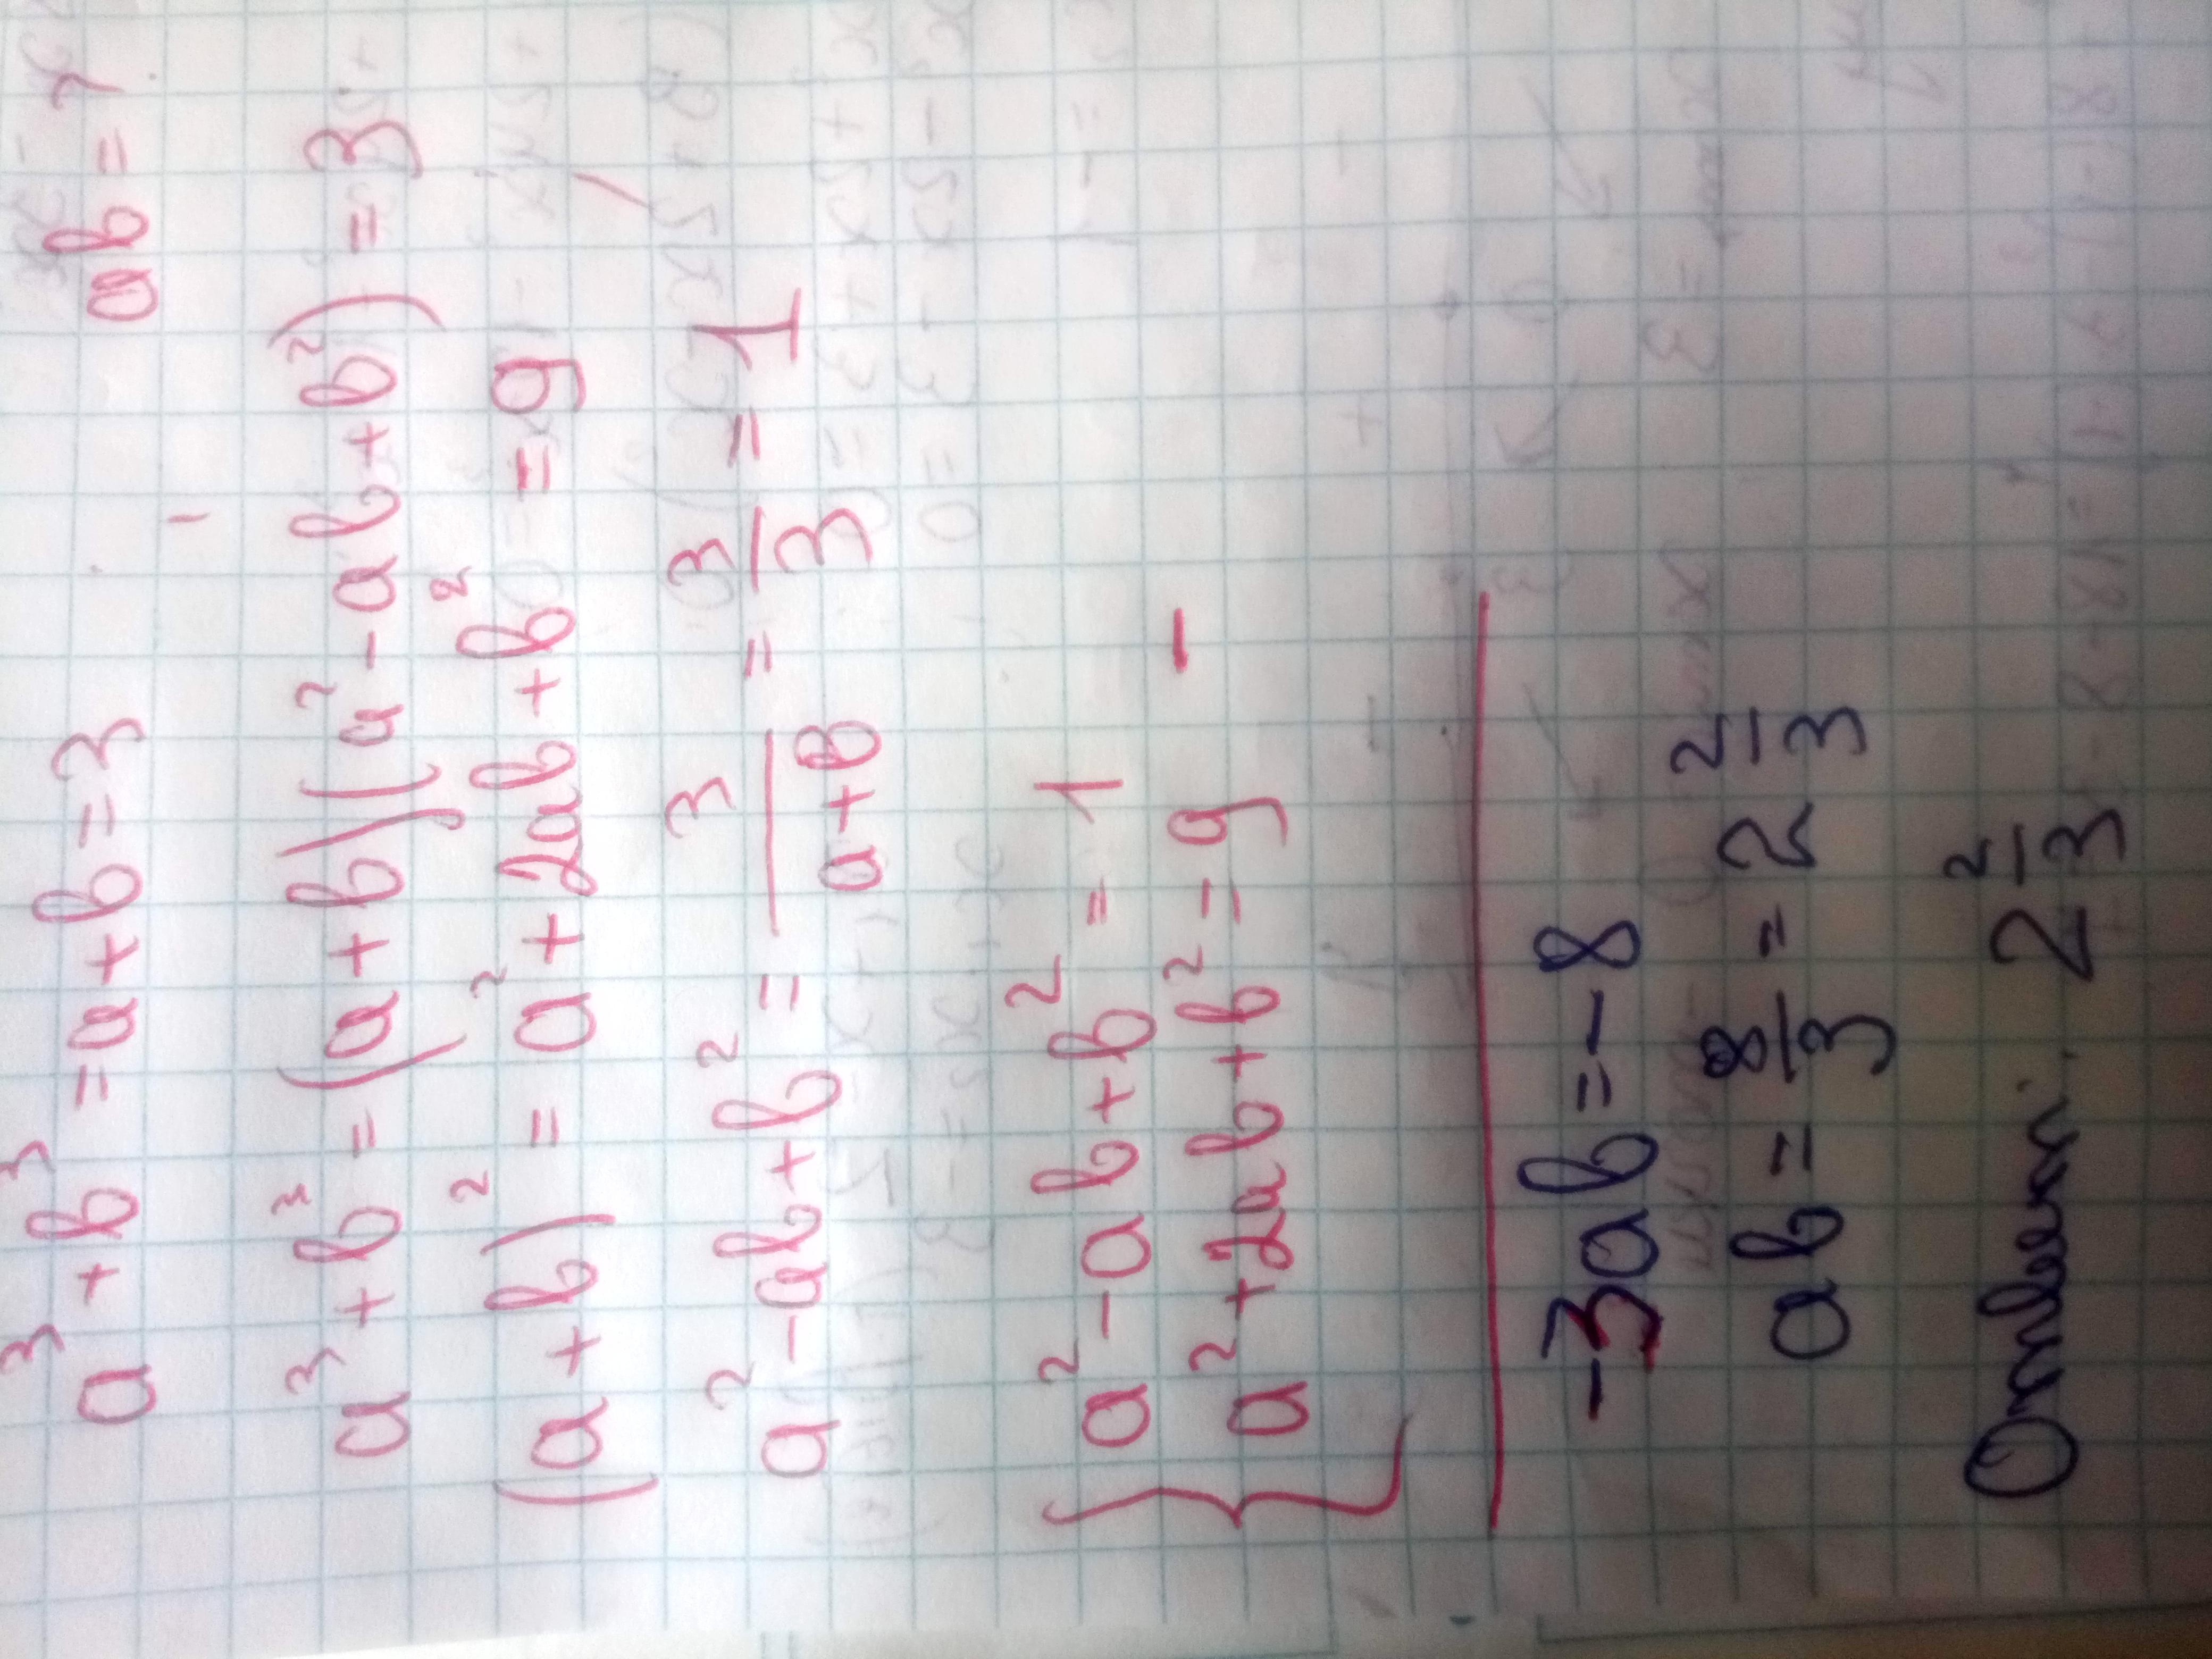 a³ + b³ = a + b = 3    ab = ?
a³ + b³ = (a + b)(a² - ab + b²) = 3
(a + b)² = a² + 2ab + b² = 9
a² - ab + b² = 3/(a+b) = 3/3 = 1
{ a² - ab + b² = 1
a² + 2ab + b² = 9 -
-3ab = -8
ab = 8/3 = 2 2/3
Ответ: 2 2/3